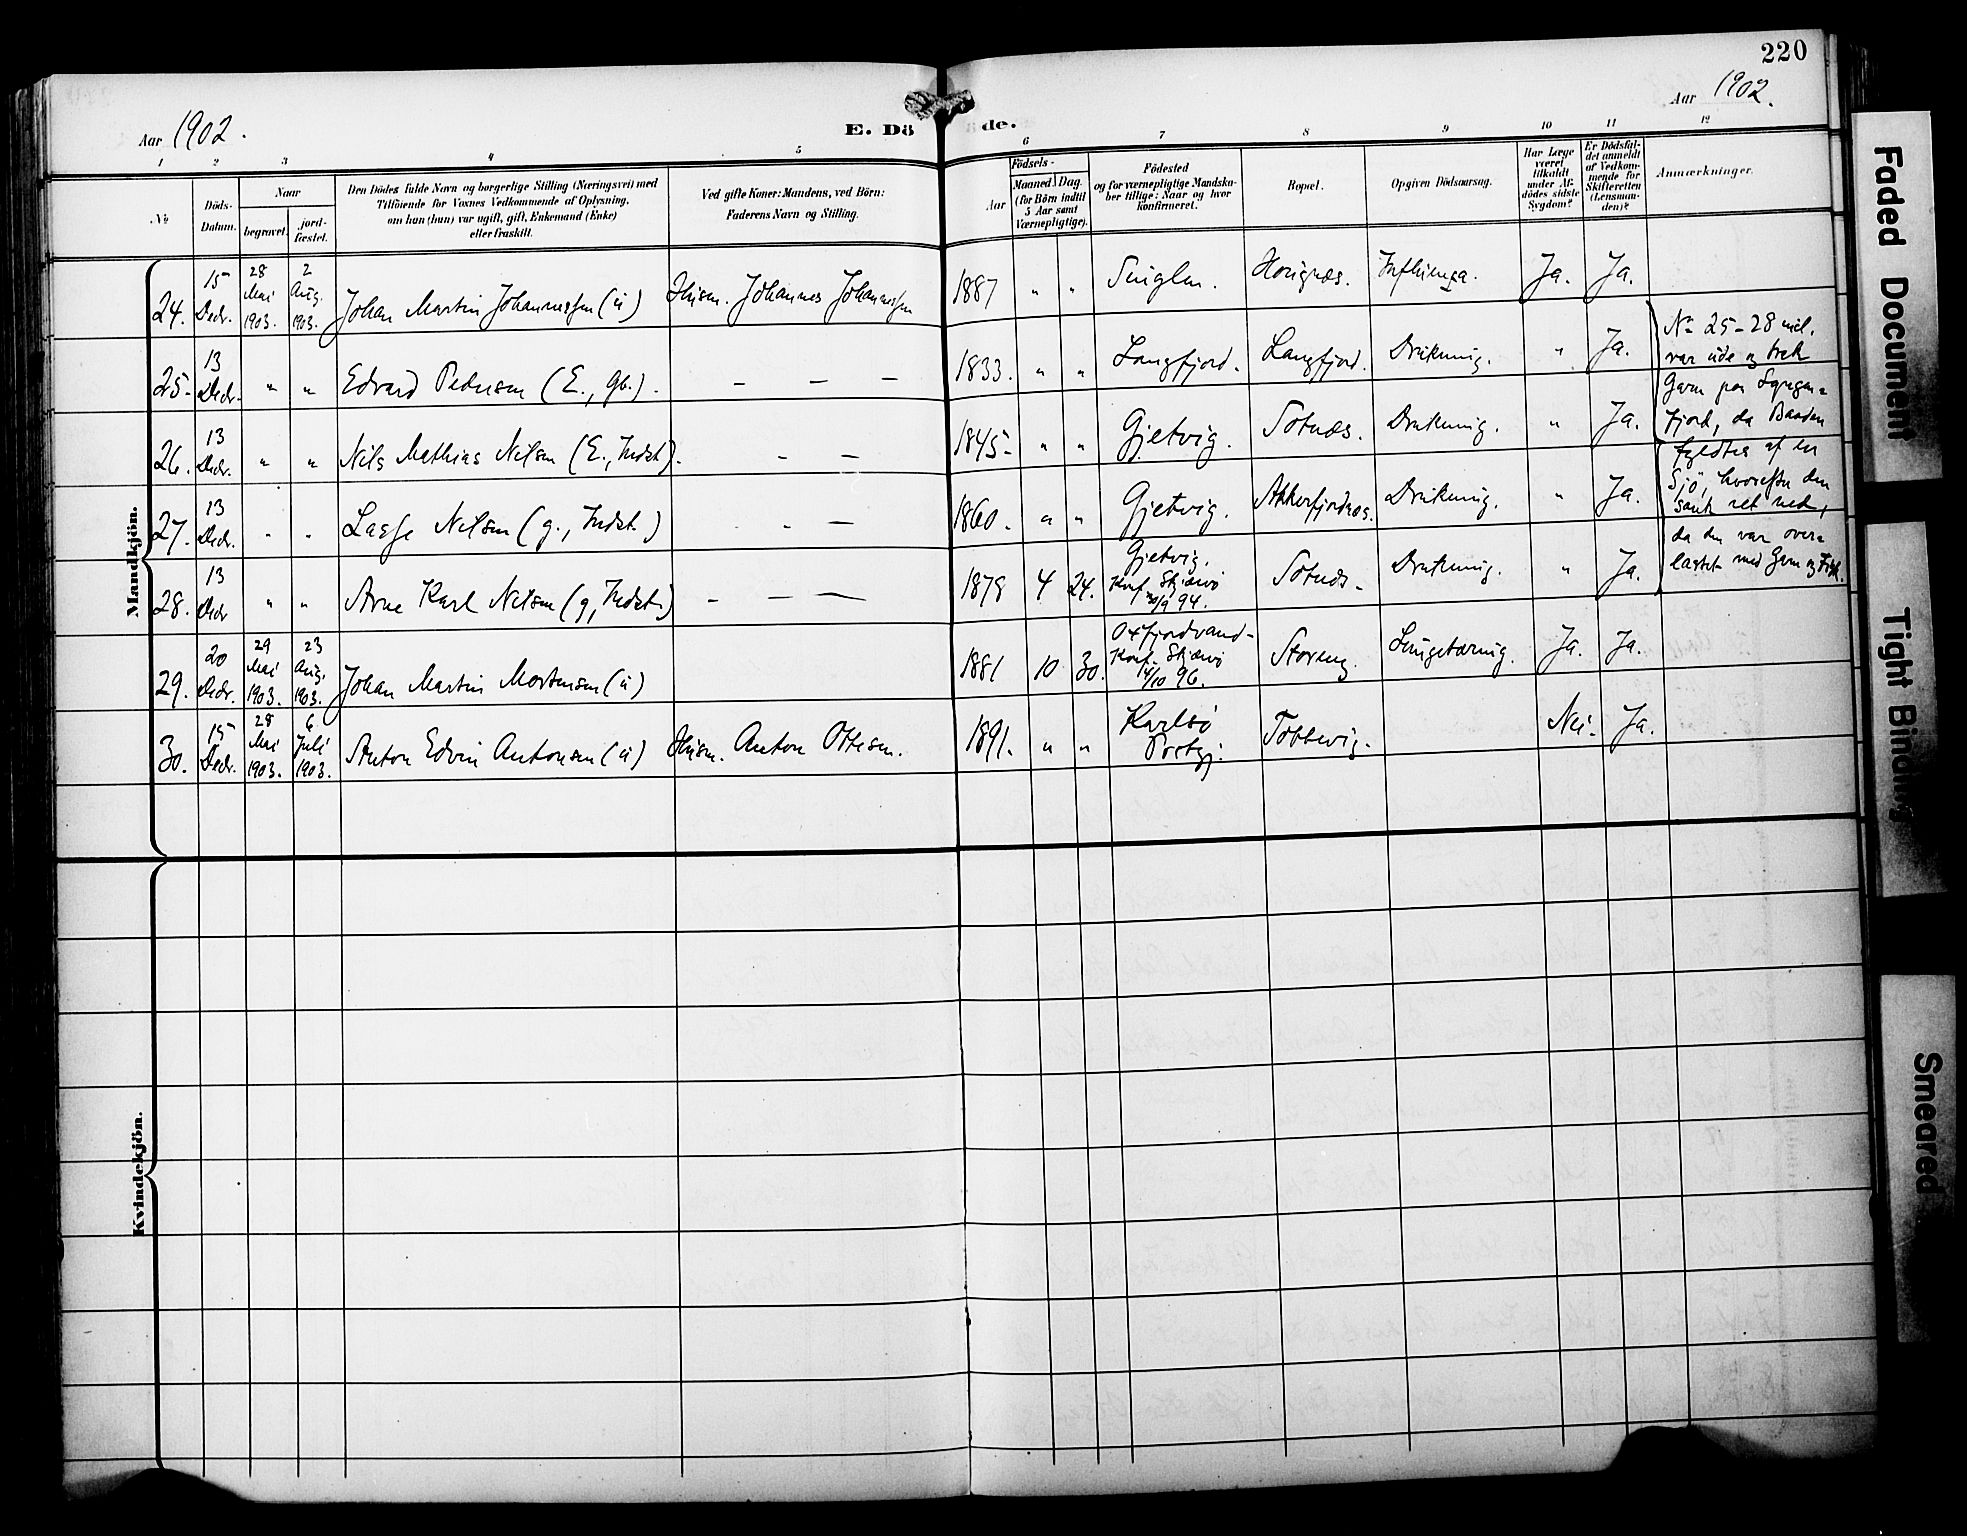 220
Aar 1902.
E. Döde.
Aar 1902.
1 2 3 4 5 6 7 8 9 10 11 12
No
Döds-
Datum.
Naar
begravet.
jord-
fæstet.
Den Dödes fulde Navn og borgerlige Stilling (Næringsvei) med
Tilföiende for Voxnes Vedkommende af Oplysning,
om han (hun) var ugift, gift, Enkemand (Enke)
eller fraskilt.
Ved gifte Koner: Mandens, ved Börn:
Faderens Navn og Stilling.
Födsels-
Aar
Maaned. Dag.
(for Börn indtil
5 Aar samt
Værnepligtige).
Födested
og for værnepligtige Mandska-
ber tillige: Naar og hvor
konfirmeret.
Bopæl.
Opgiven Dödsaarsag.
Har Læge
været
tilkaldt
under Af-
dödes sidste
Sygdom?
Er Dödsfal-
det anmeldt
af Vedkom-
mende for
Skifteretten
(Lensman-
den)?
Anmærkninger.
Mandkjön.
24. 15 Decbr. 28 Mai 1903. 2 Aug. 1903. Johan Martin Johannessen (u) Husm. Johannes Johannessen 1887 " " Ja. Ja.
25. 13 Decbr. " " Edvard Pedersen (E., gb.). – – – 1833. " " Langfjord. Langfjord. Drukning. " Ja.
26. 13 Decbr. " " Nils Mathias Nilsen (E., Indst.). – – 1845 " " Gjetvig. Sotnæs. Drukning. " Ja.
27. 13 Decbr. " " Lasse Nilsen (g., Indst.) – – 1860. " " Gjetvig. Akkarfjordnes. Drukning. " Ja.
28. 13 Decbr " " Arne Karl Nilsen (g, Indst.) – – – 1878 4 24. Gjetvig. Konf. Skjærvö 30/9 94. Sotnæs. Drukning. " Ja.
29. 20 Decbr. 29 Mai 1903. 23 Aug. 1903. Johan Martin Mortensen (u) 1881 10 30. Oxfjordvand- Konf. Skjærvö 14/10 96. Storeng. Lungetæring. Ja. Ja.
30. 15 Decbr. 28 Mai 1903. 6 Juli 1903. Anton Edvin Antonsen (u) Husm. Anton Ottesen. 1891. " " Karlsö Prstgj. Nei. Ja.
No 25-28 incl.
var ude og trak
Garn paa Lyngen-
fjord, da Baaden
fyldtes af en
Sjö, hvorefter den
sank ret ned,
da den var over-
lastet med Garn og Fisk.
Kvindekjön.
Faded Document
Tight Binding
Smeared